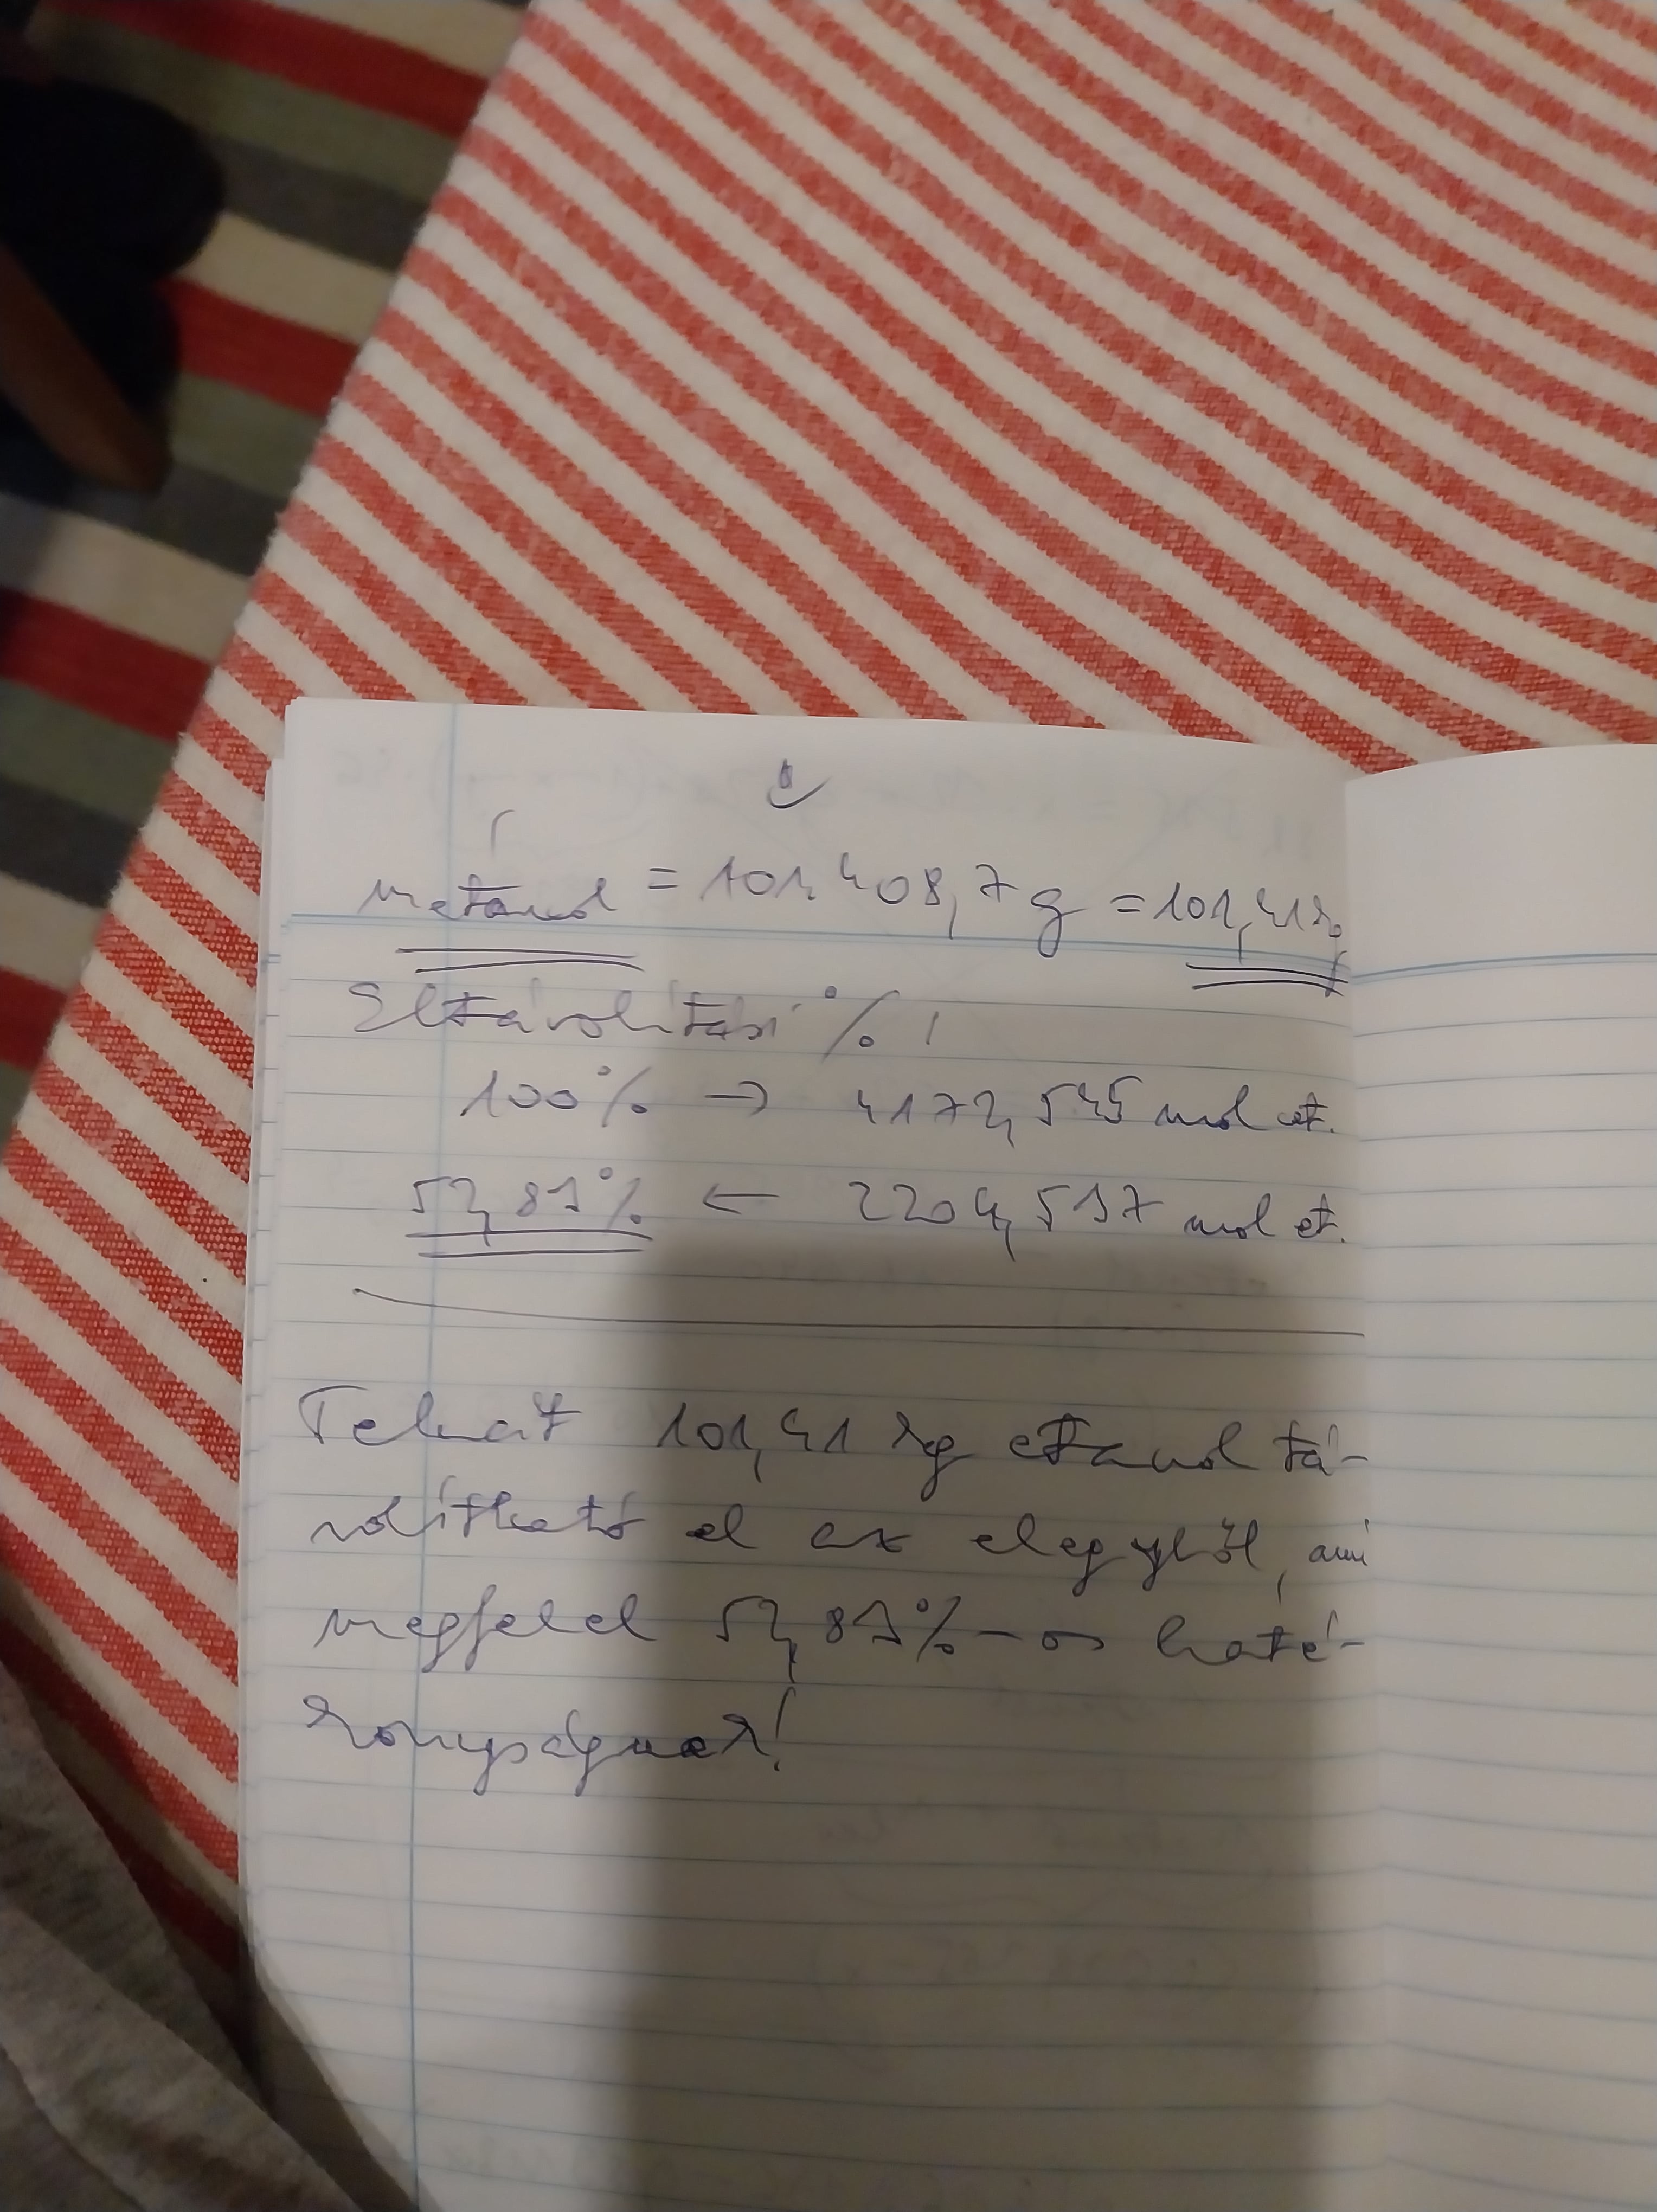 metanol = 101 408,7 g = 101,41 kg
Eltávolítási % !
100% → 4172,545 mol et.
52,83% ← 2204,537 mol et.
Tehát 101,41 kg etanol tá-
volítható el az elegyből, ami
megfelel 52,83%-os haté-
konyságnak!